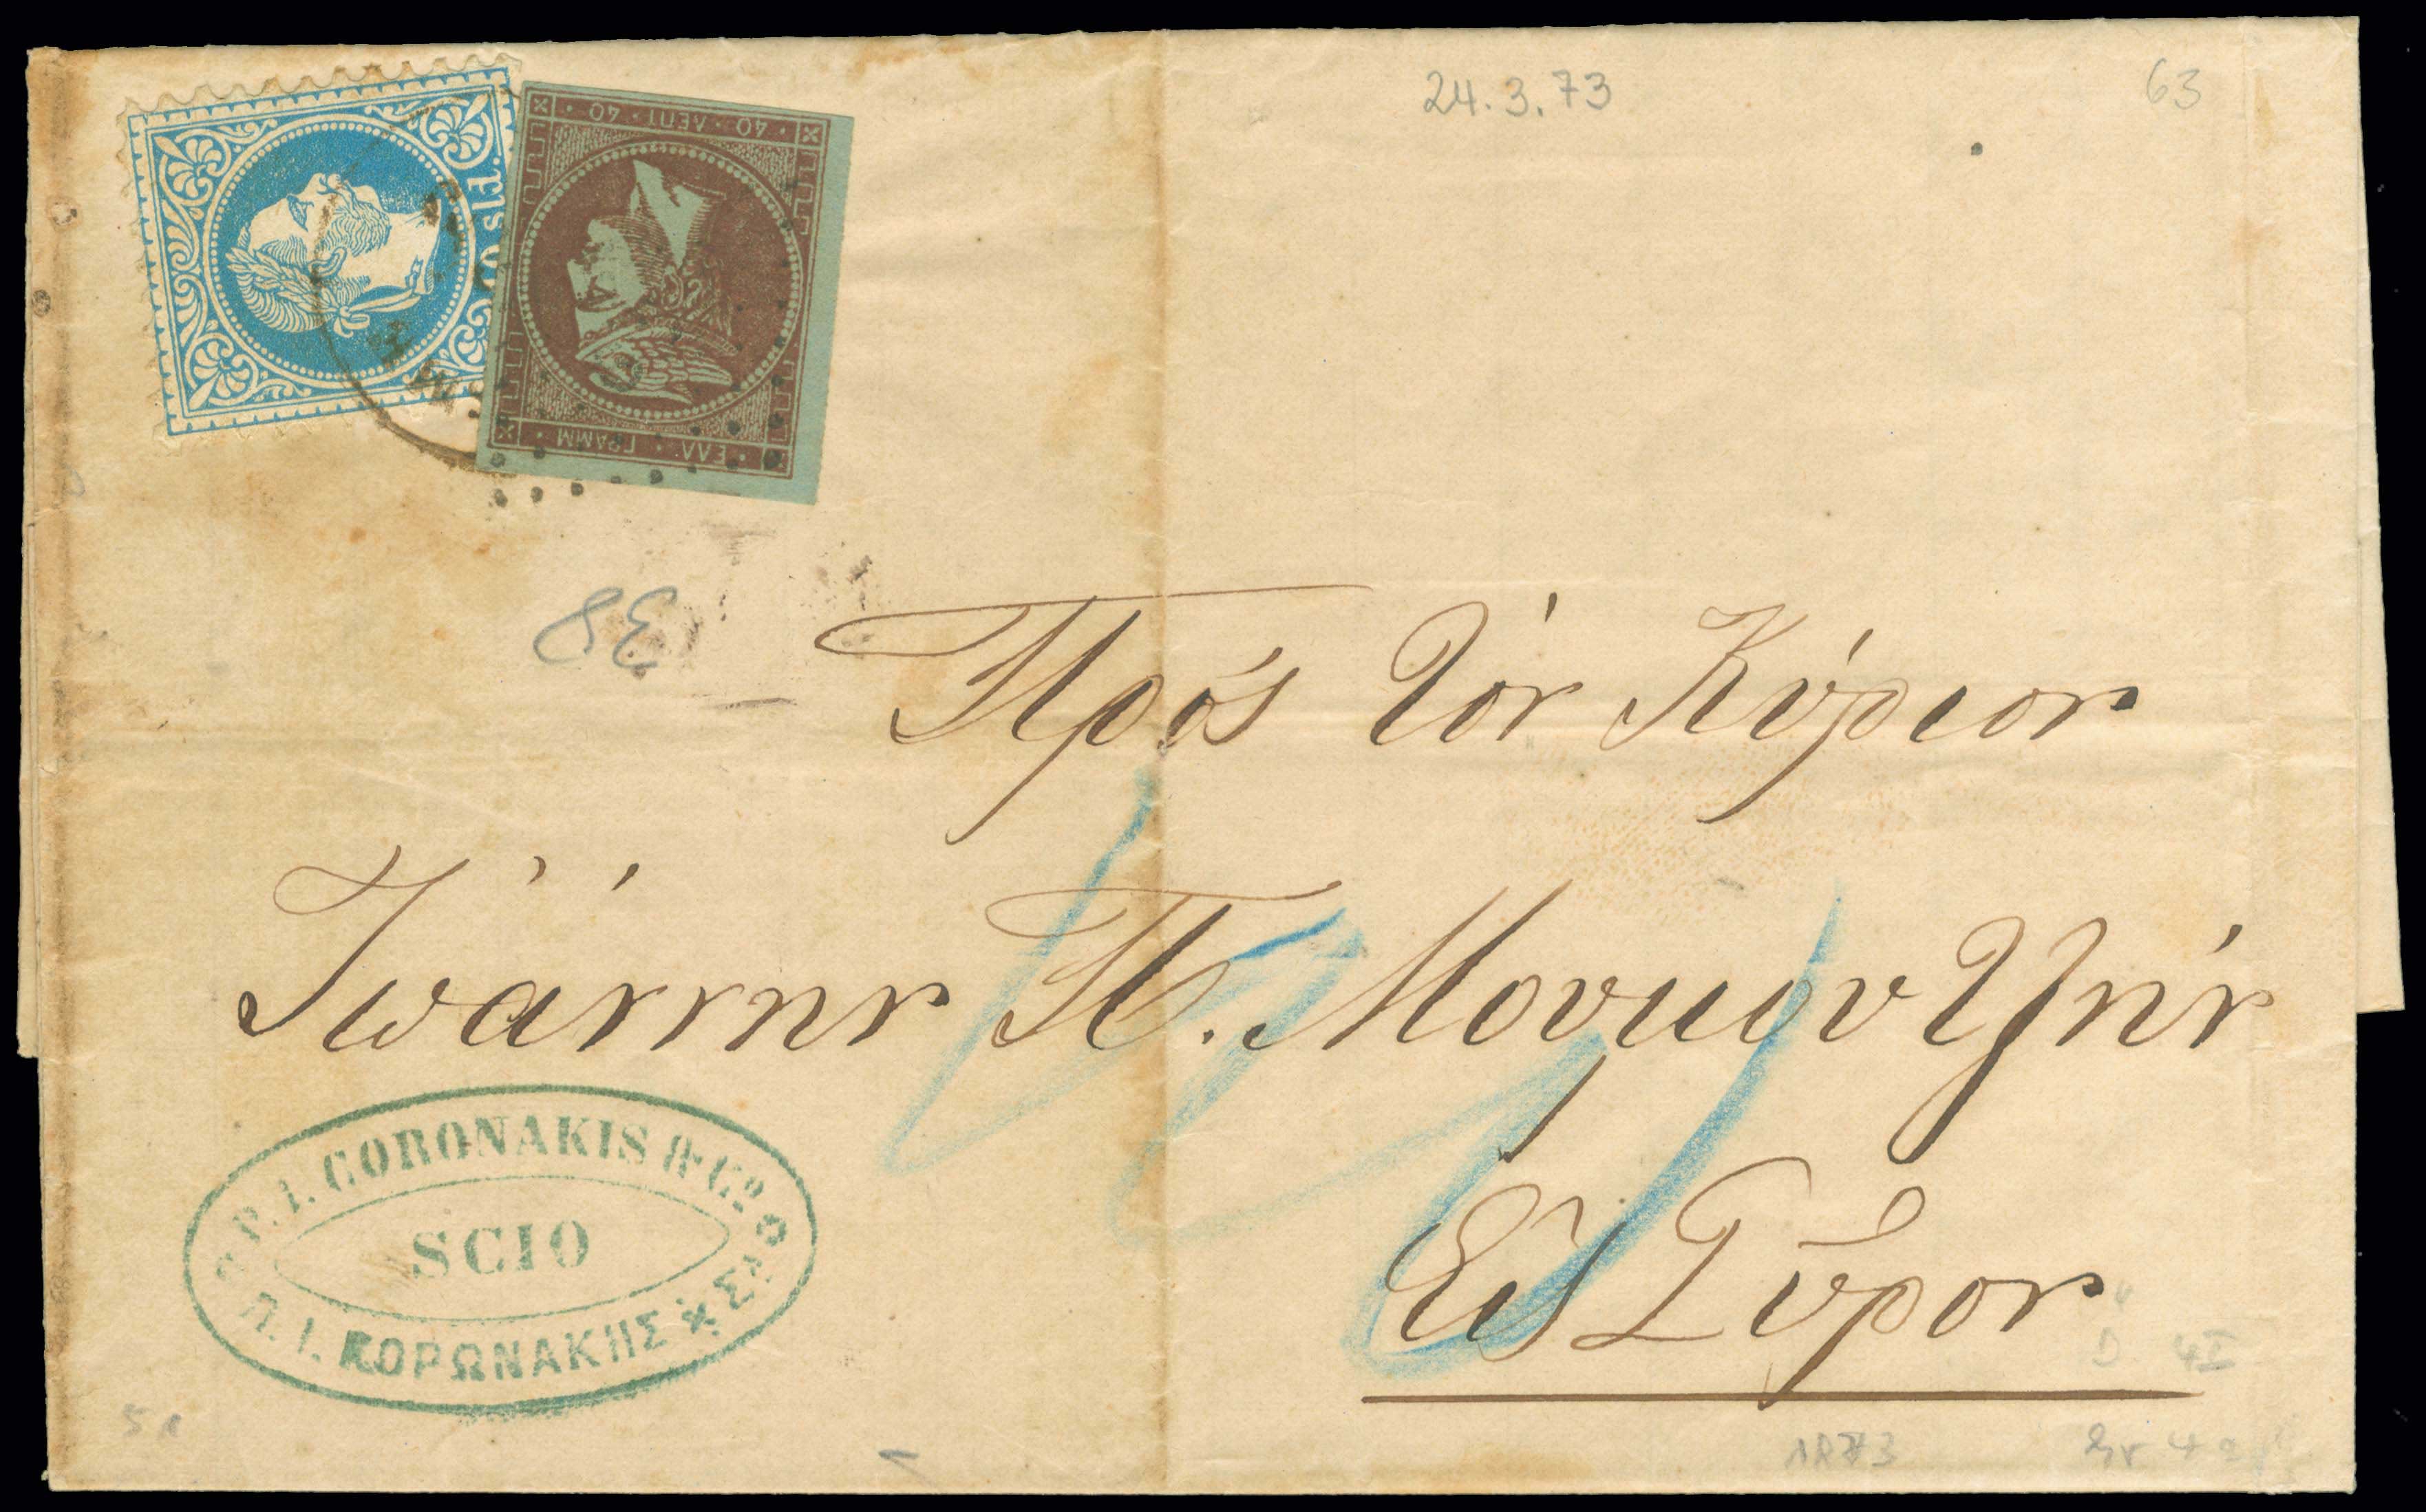 24.3.73
63
40 · ΛΕΠΤ · 40
ΕΛΛ · ΓΡΑΜΜ
38
Πρὸς Τὸν Κύριον
Ἰωάννην Π. Μουκουτζῆν
Εἰς Σῦρον
P. I. CORONAKIS & Cº
SCIO
Π. Ι. ΚΟΡΩΝΑΚΗΣ & Σᴵᴬ
1873